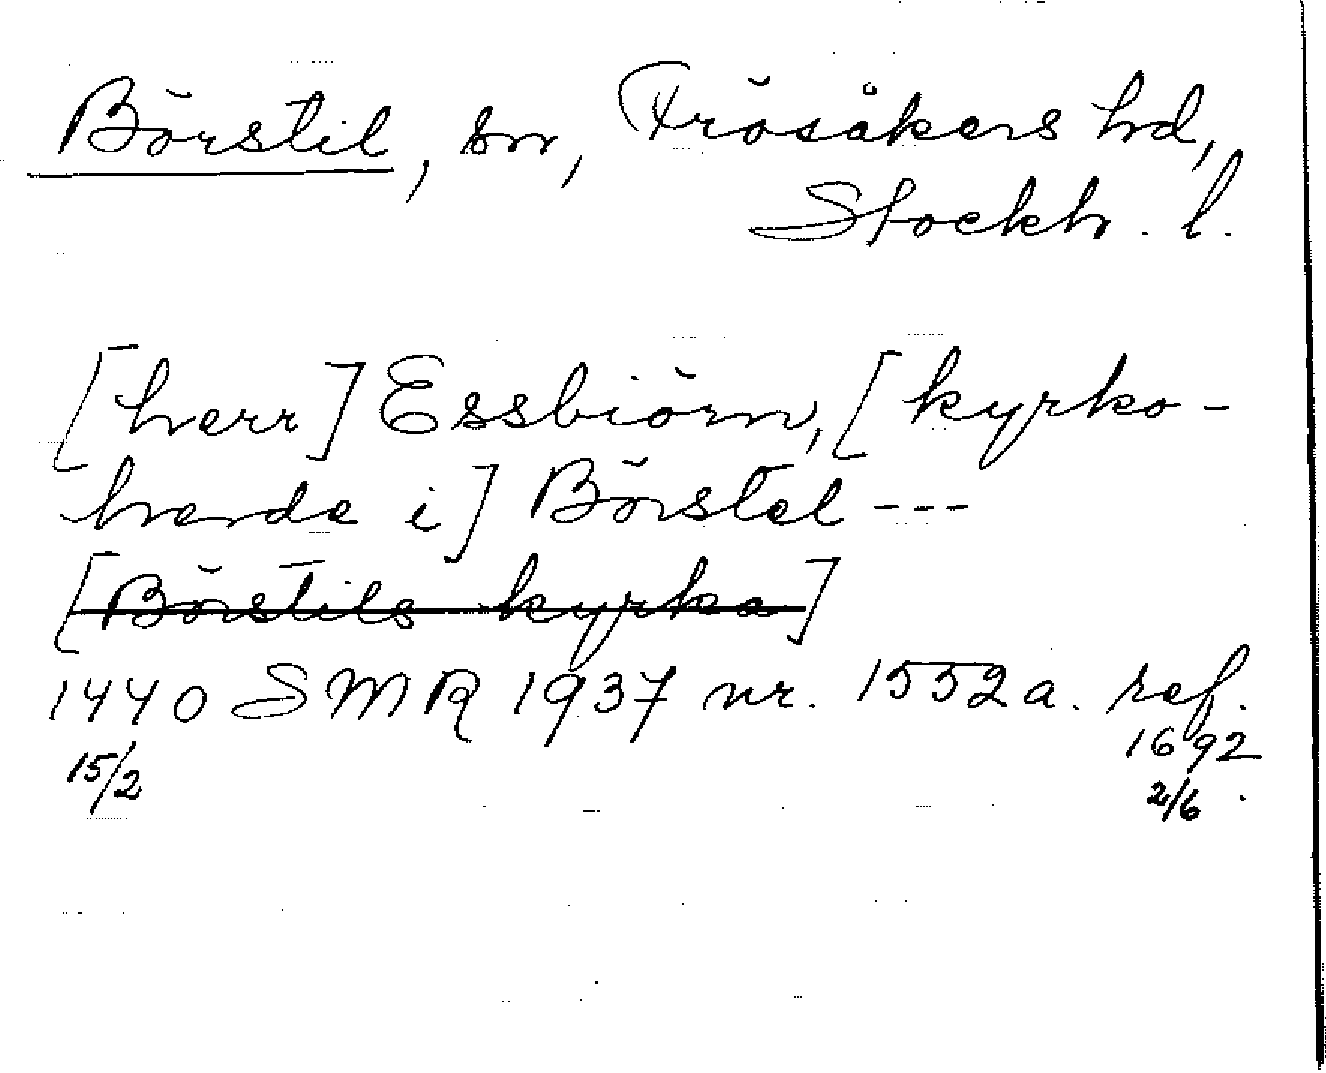 Börstil, sn, Frösåkers hd,
Stockh. l.
[herr] Essbiörn, [kyrko-
herde i] Börstel ---
[Börstils kyrka]
1440 SMR 1937 nr. 1552a. ref.
15/2 1692
2/6.